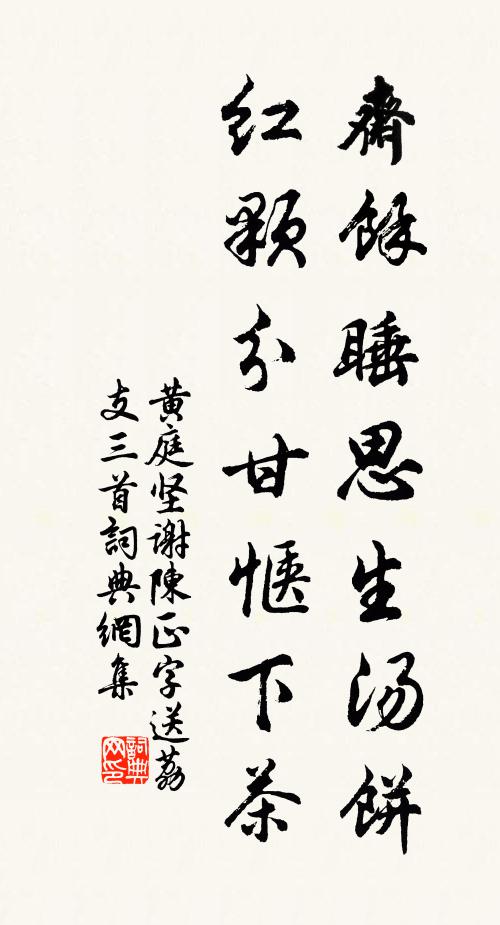 齋餘睡思生湯餅
紅顆分甘愜下茶
黄庭坚谢陳正字送荔
支三首詞典網集
詞典
网印